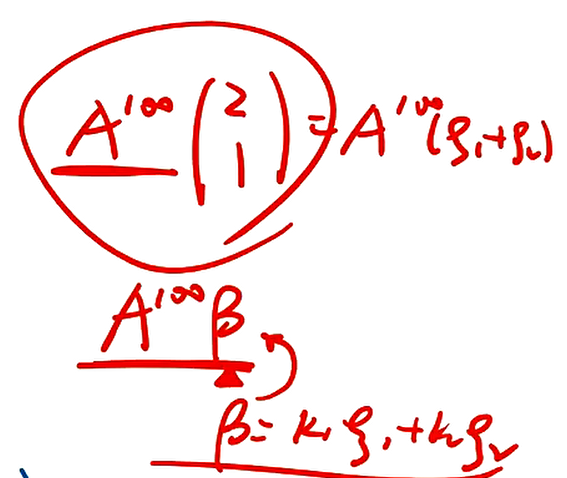 A¹⁰⁰ (2 1) = A¹⁰⁰(ξ₁+ξ₂)
A¹⁰⁰β
β = k₁ξ₁+k₂ξ₂